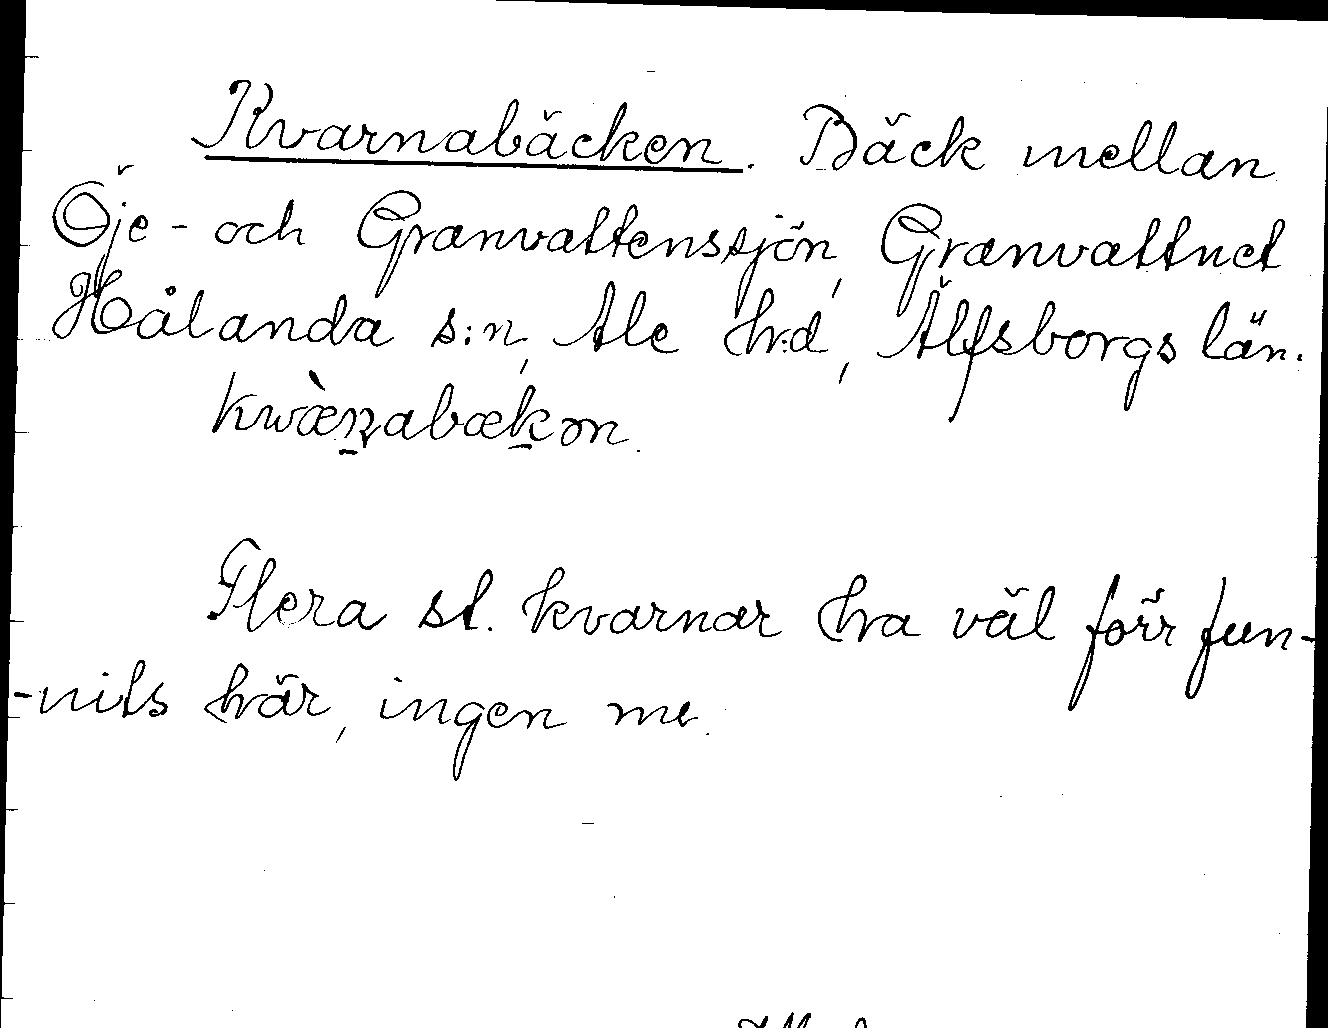 Kvarnabäcken. Bäck mellan
Öje- och Granvattenssjön, Granvattnet
Hålanda s:n, Ale h:d, Älfsborgs län.
kwæ̀ɳabækon.
Flera st. kvarnar ha väl förr fun-
-nits här, ingen nu.